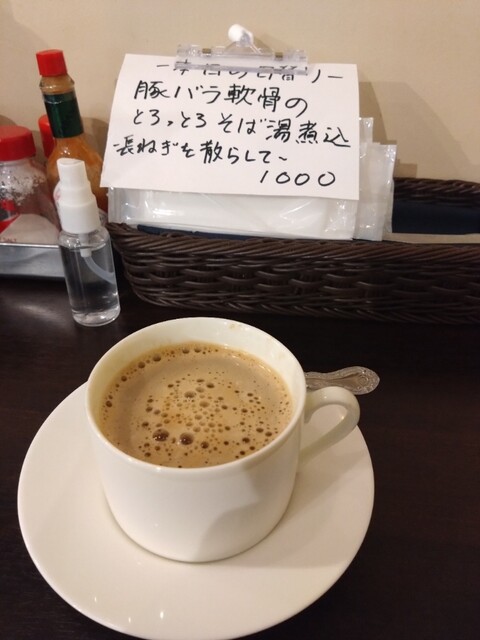 ー本日の日替りー
豚バラ軟骨の
とろっとろ そば湯煮込
長ねぎを散らして~
1000